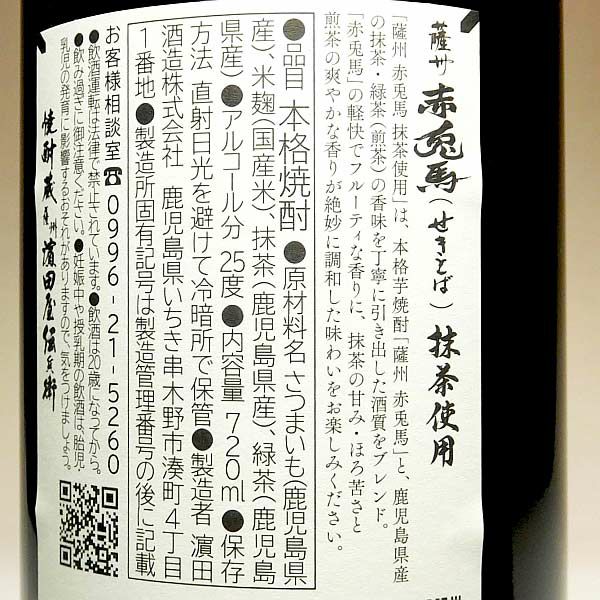 薩州 赤兎馬(せきとば) 抹茶使用
「薩州 赤兎馬 抹茶使用」は、本格芋焼酎「薩州 赤兎馬」と、鹿児島県産
の抹茶・緑茶(煎茶)の香味を丁寧に引き出した酒質をブレンド。
「赤兎馬」の軽快でフルーティな香りに、抹茶の甘み・ほろ苦さと
煎茶の爽やかな香りが絶妙に調和した味わいをお楽しみください。
●品目 本格焼酎 ●原材料名 さつまいも(鹿児島県
産)、米麹(国産米)、抹茶(鹿児島県産)、緑茶(鹿児島
県産)●アルコール分 25度●内容量 720ml●保存
方法 直射日光を避けて冷暗所で保管●製造者 濵田
酒造株式会社 鹿児島県いちき串木野市湊町4丁目
1番地●製造所固有記号は製造管理番号の後に記載
お客様相談室☎0996-21-5260
●飲酒運転は法律で禁止されています。●飲酒は20歳になってから。
●飲み過ぎに御注意ください。●妊娠中や授乳期の飲酒は、胎児・
乳児の発育に影響するおそれがありますので、気をつけましょう。
焼酎蔵 薩州 濵田屋伝兵衛